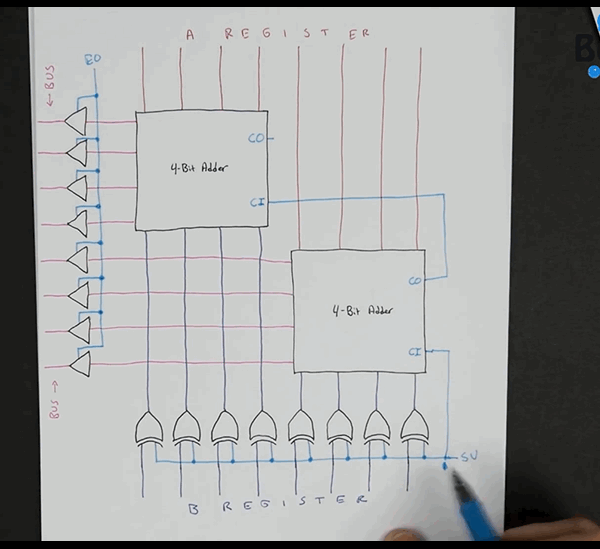 A REGISTER
← BUS
EO
CO
4-Bit Adder
CI
CO
4-Bit Adder
CI
BUS →
SU
B REGISTER